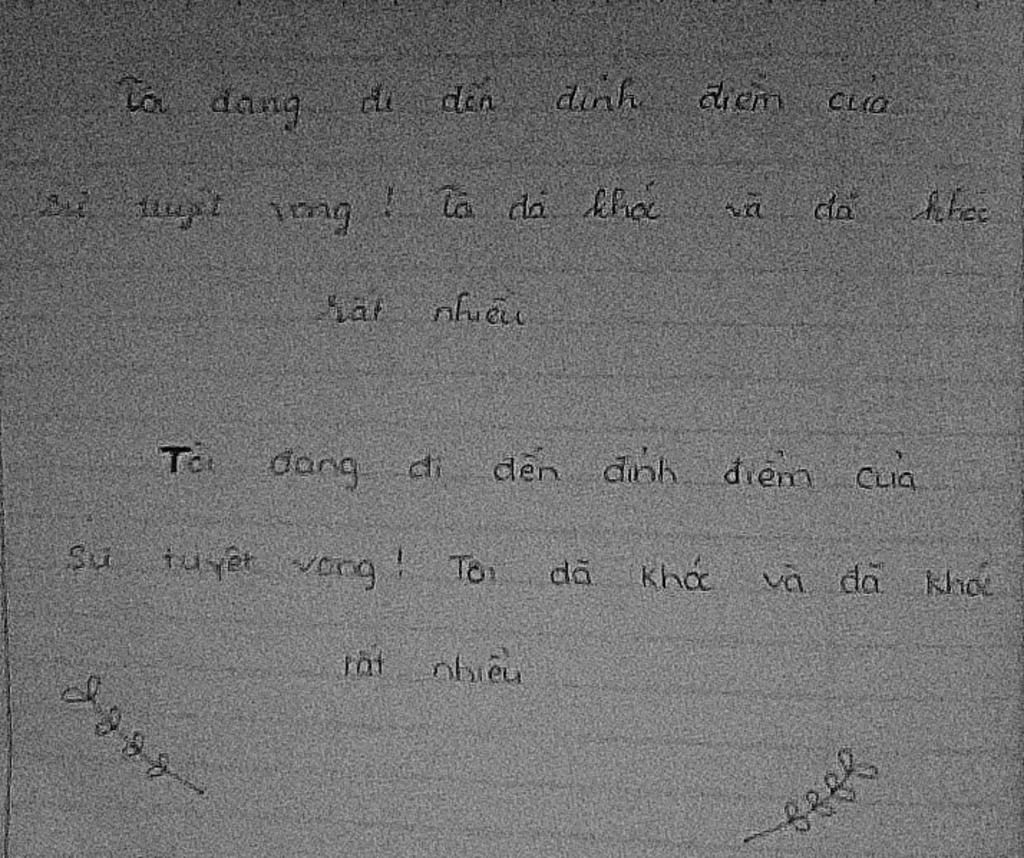 Tôi đang đi đến đỉnh điểm của
sự tuyệt vọng! Tôi đã khóc và đã khóc
rất nhiều
Tôi đang đi đến đỉnh điểm của
Sự tuyệt vọng! Tôi đã khóc và đã khóc
rất nhiều